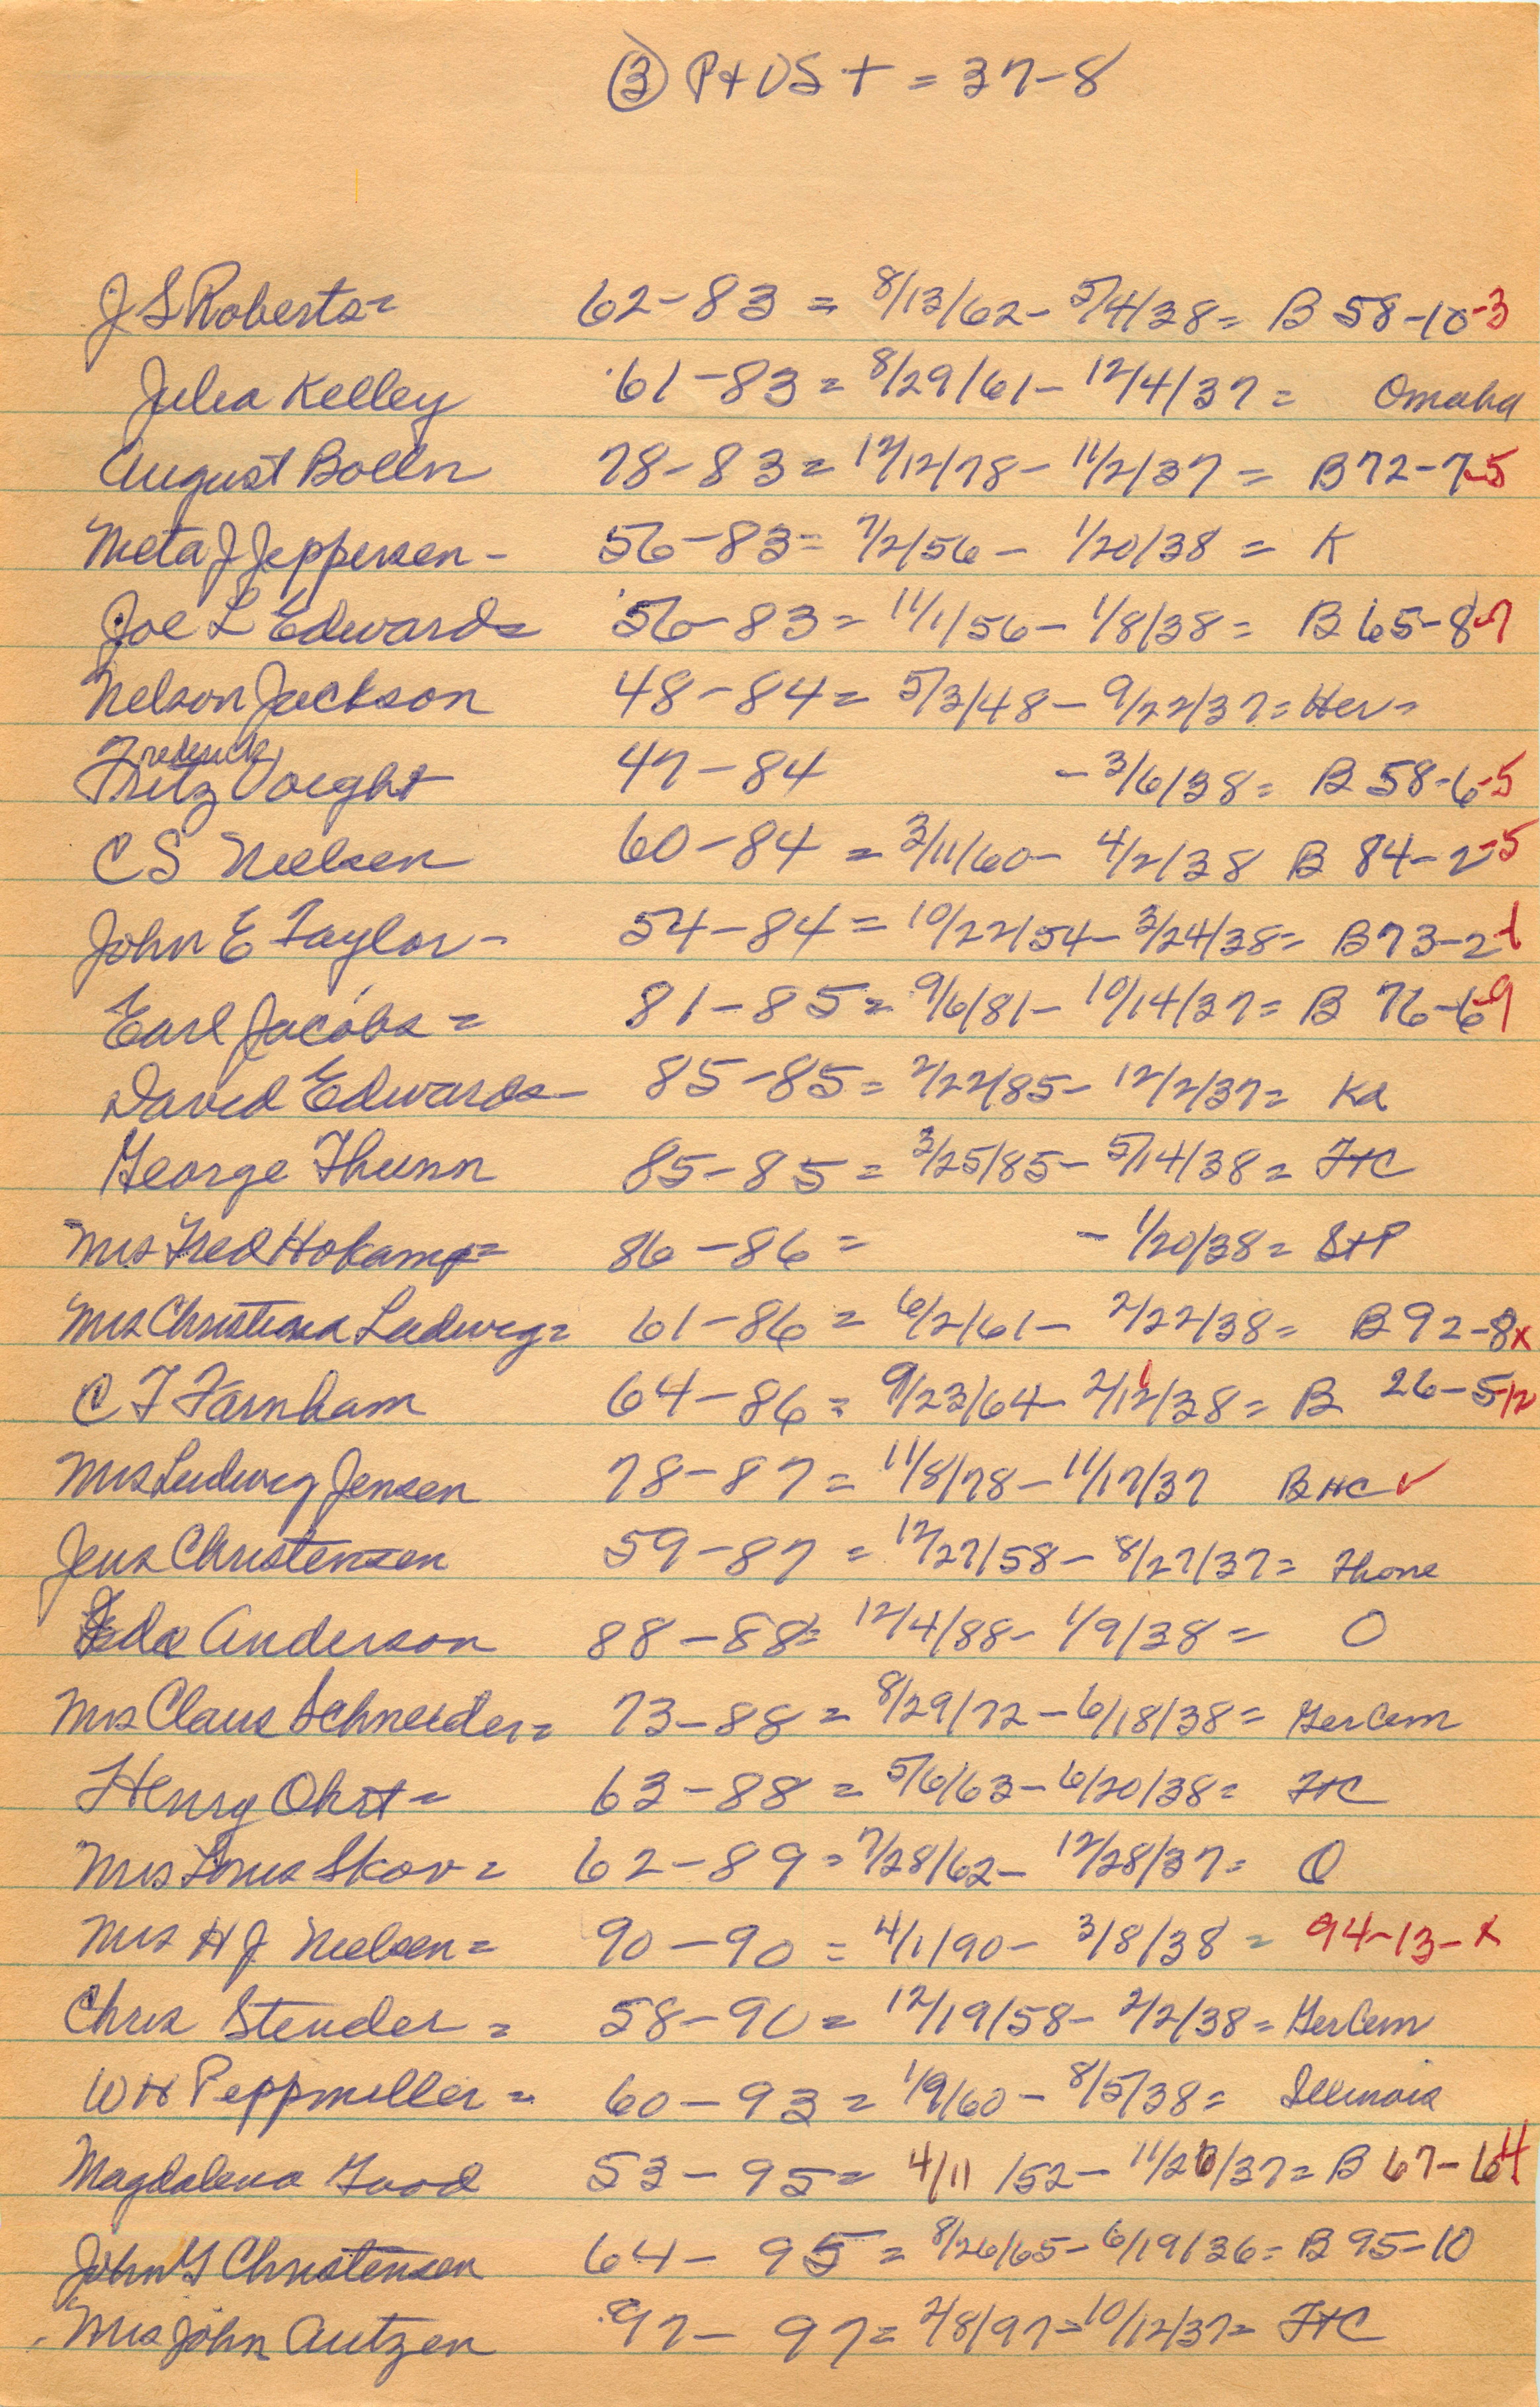 ③ P+DS+ = 37-8
J S Roberts= 62-83 = 8/13/62- 5/4/38= B 58-10-3
Julia Kelley 61-83= 8/29/61- 12/4/37= Omaha
August Bolln 78-83= 12/12/78- 11/2/37 = B72-7-5
Meta J Jeppersen- 56-83= 7/2/56- 1/20/38 = K
Joe L Edwards 56-83= 11/1/56- 1/8/38= B 65-8-7
Nelson Jackson 48-84= 5/3/48- 9/22/37= Her-
Frederick
Fritz Voight 47-84 -3/6/38= B 58-6-5
C S Nielsen 60-84 = 3/11/60- 4/2/38 B 84-2-5
John E Taylor- 54-84= 10/22/54- 3/24/38= B73-2-1
Earl Jacobs= 81-85= 9/6/81- 10/14/37= B 76-6-9
David Edwards- 85-85= 2/22/85- 12/2/37= Ka
George Thunn 85-85= 3/25/85- 5/14/38= FtC
Mrs Fred Hokamp= 86-86= - 1/20/38= StP
Mrs Christina Ludwig= 61-86= 6/2/61- 2/22/38= B92-8x
C F Farnham 64-86= 9/23/64- 2/12/38= B 26-5-12
Mrs Ludwig Jensen 78-87= 11/8/78- 11/17/37 B HC ✓
Jens Christensen 59-87= 12/27/58- 8/27/37= Thone
Anderson 88-88= 12/4/88- 1/9/38= O
Mrs Claus Schneider= 73-88= 8/29/72- 6/18/38= GerCem
Henry Ohrt= 63-88= 5/6/63- 6/20/38= FtC
Mrs Louis Skov= 62-89= 7/28/62- 12/28/37= O
Mrs H J Nielsen= 90-90= 4/1/90- 3/8/38= 94-13-x
Chris Stender= 58-90= 12/19/58- 2/2/38= GerCem
W H Peppmiller= 60-93= 1/9/60- 8/5/38= Illinois
Magdalena Good 53-95= 4/11/52- 11/26/37= B 67-
John G Christensen 64-95= 8/26/65- 6/19/36= B 95-10
Mrs John Autzen 97-97= 2/8/97- 10/12/37= FtC